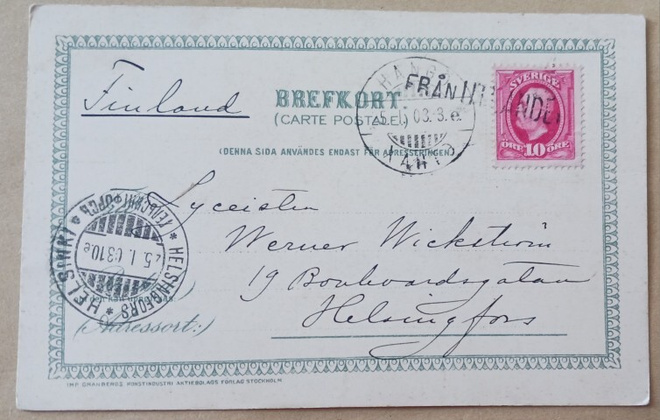 Finland
BREFKORT.
(CARTE POSTALE.)
(DENNA SIDA ANVÄNDES ENDAST FÖR ADRESSERINGEN)
FRÅN
SVERIGE
ÖRE 10 ÖRE
Lyceisten
Werner Wickström
19 Boulevardsgatan
Helsingfors
HELSINGFORS
25. 1. 03 10e
(Adressort:)
IMP. GRANBERGS KONSTINDUSTRI AKTIEBOLAGS FÖRLAG STOCKHOLM.